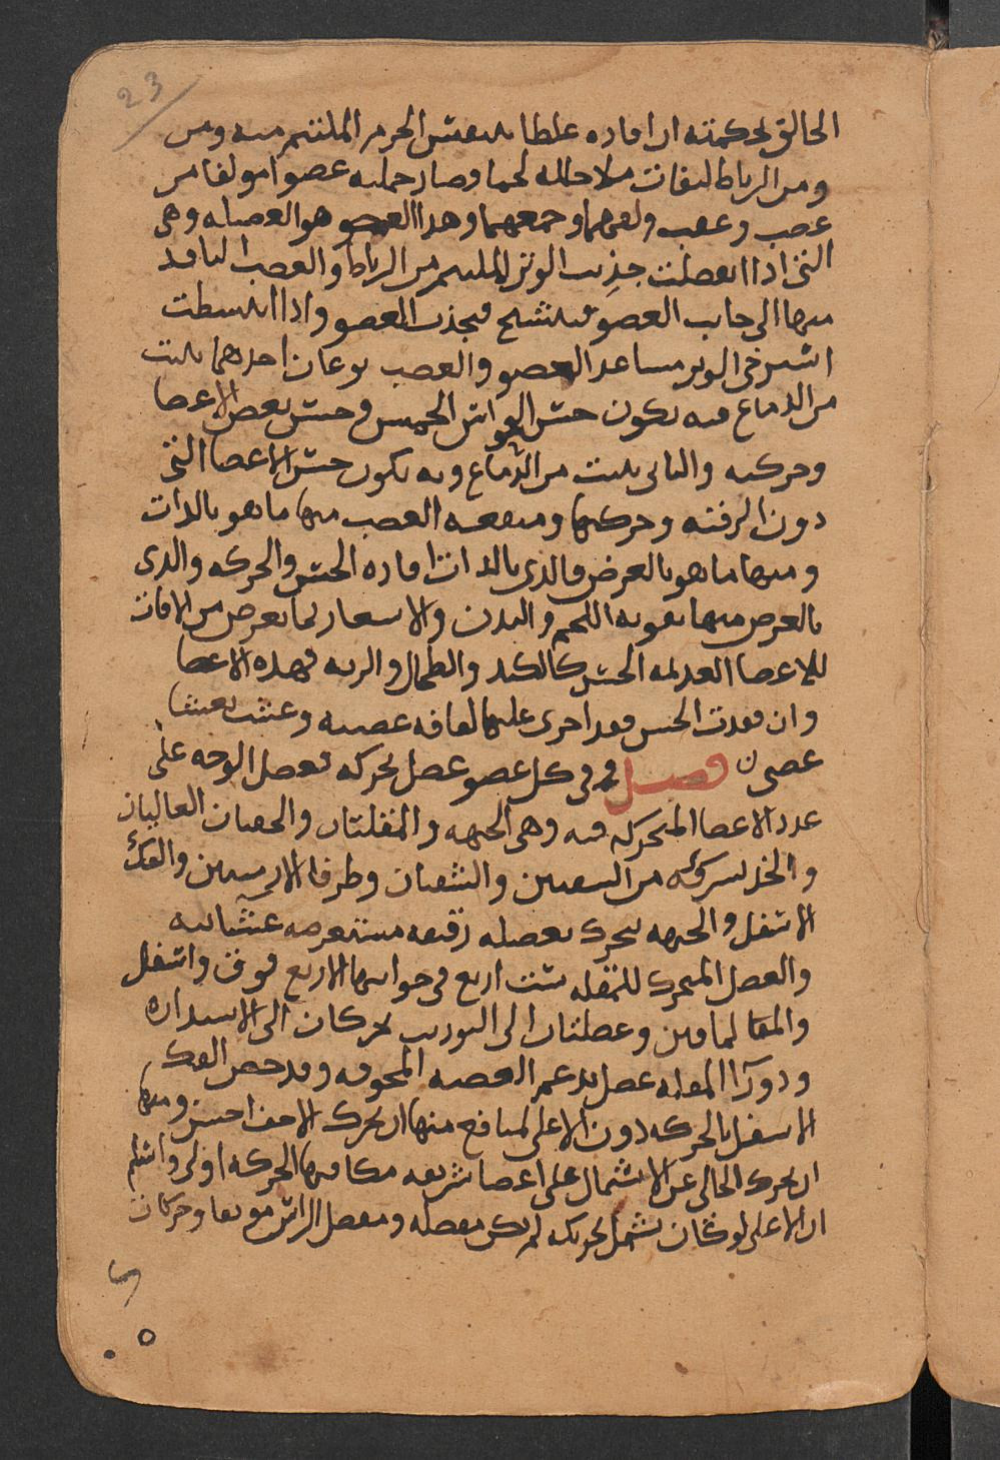 23
الخالق بحكمته ان افاده غلظا بتنفيش الجرم الملتئم منه ومن
ومن الرباط ليفات ملا خلله لحما وصار جملته عضوا مولفا من
عصب وعقب وليفهما وجمعهما وهذا العضو هو العضله وهى
التى اذا تقلصت جذبت الوتر الملتئم من الرباط والعصب النافذ
منها الى جانب العضو فيتشنج فيجذب العضو واذا انبسطت
استرخى الوتر مساعد العضو والعصب نوعان احدهما ينبت
من الدماغ فيه يكون حس الحواس الخمس وحس بعض الاعضا
وحركته والثانى ينبت من النخاع وبه يكون حس الاعضا التى
دون الرقبه وحركتها ومنفعه العصب منها ما هو بالذات
ومنها ما هو بالعرض فالذى بالذات افاده الحس والحركه والذى
بالعرض منها تقويه اللحم والبدن والاشعار لما يعرض من الافات
للاعضا العديمه الحس كالكبد والطحال والريه فهذه الاعضا
وان فقدت الحس فقد اجرى عليها لفافه عصبيه وغشيت بغشا
عصبى فصل فى كل عضو عضل يحركه فعضل الوجه على
عدد الاعضا المتحركه فيه وهى الجبهه والمقلتان والجفنان العاليان
والخد بشركه من الشفتين والشفتان وطرفا الارنبتين والفك
الاسفل والجبهه تتحرك بعضله رقيقه مستعرضه غشائيه
والعضل المحرك للمقله ست اربع فى جوانبها الاربع فوق واسفل
والمقا لماقين وعضلتان الى التوريب يحركان الى الاستداره
وورآ المقله عضل يدعم العصبه المجوفه وقد خص الفك
الاسفل بالحركه دون الاعلى لمنافع منها ان تحرك الاخف احسن ومنها
ان تحرك الخالى عن الاشتمال على اعضا شريفه مكا فيها الحركه اولى واسلم
ان الاعلى لو كان يسهل تحريكه لم يكن مفصله ومفصل الراس موثقا وحركات